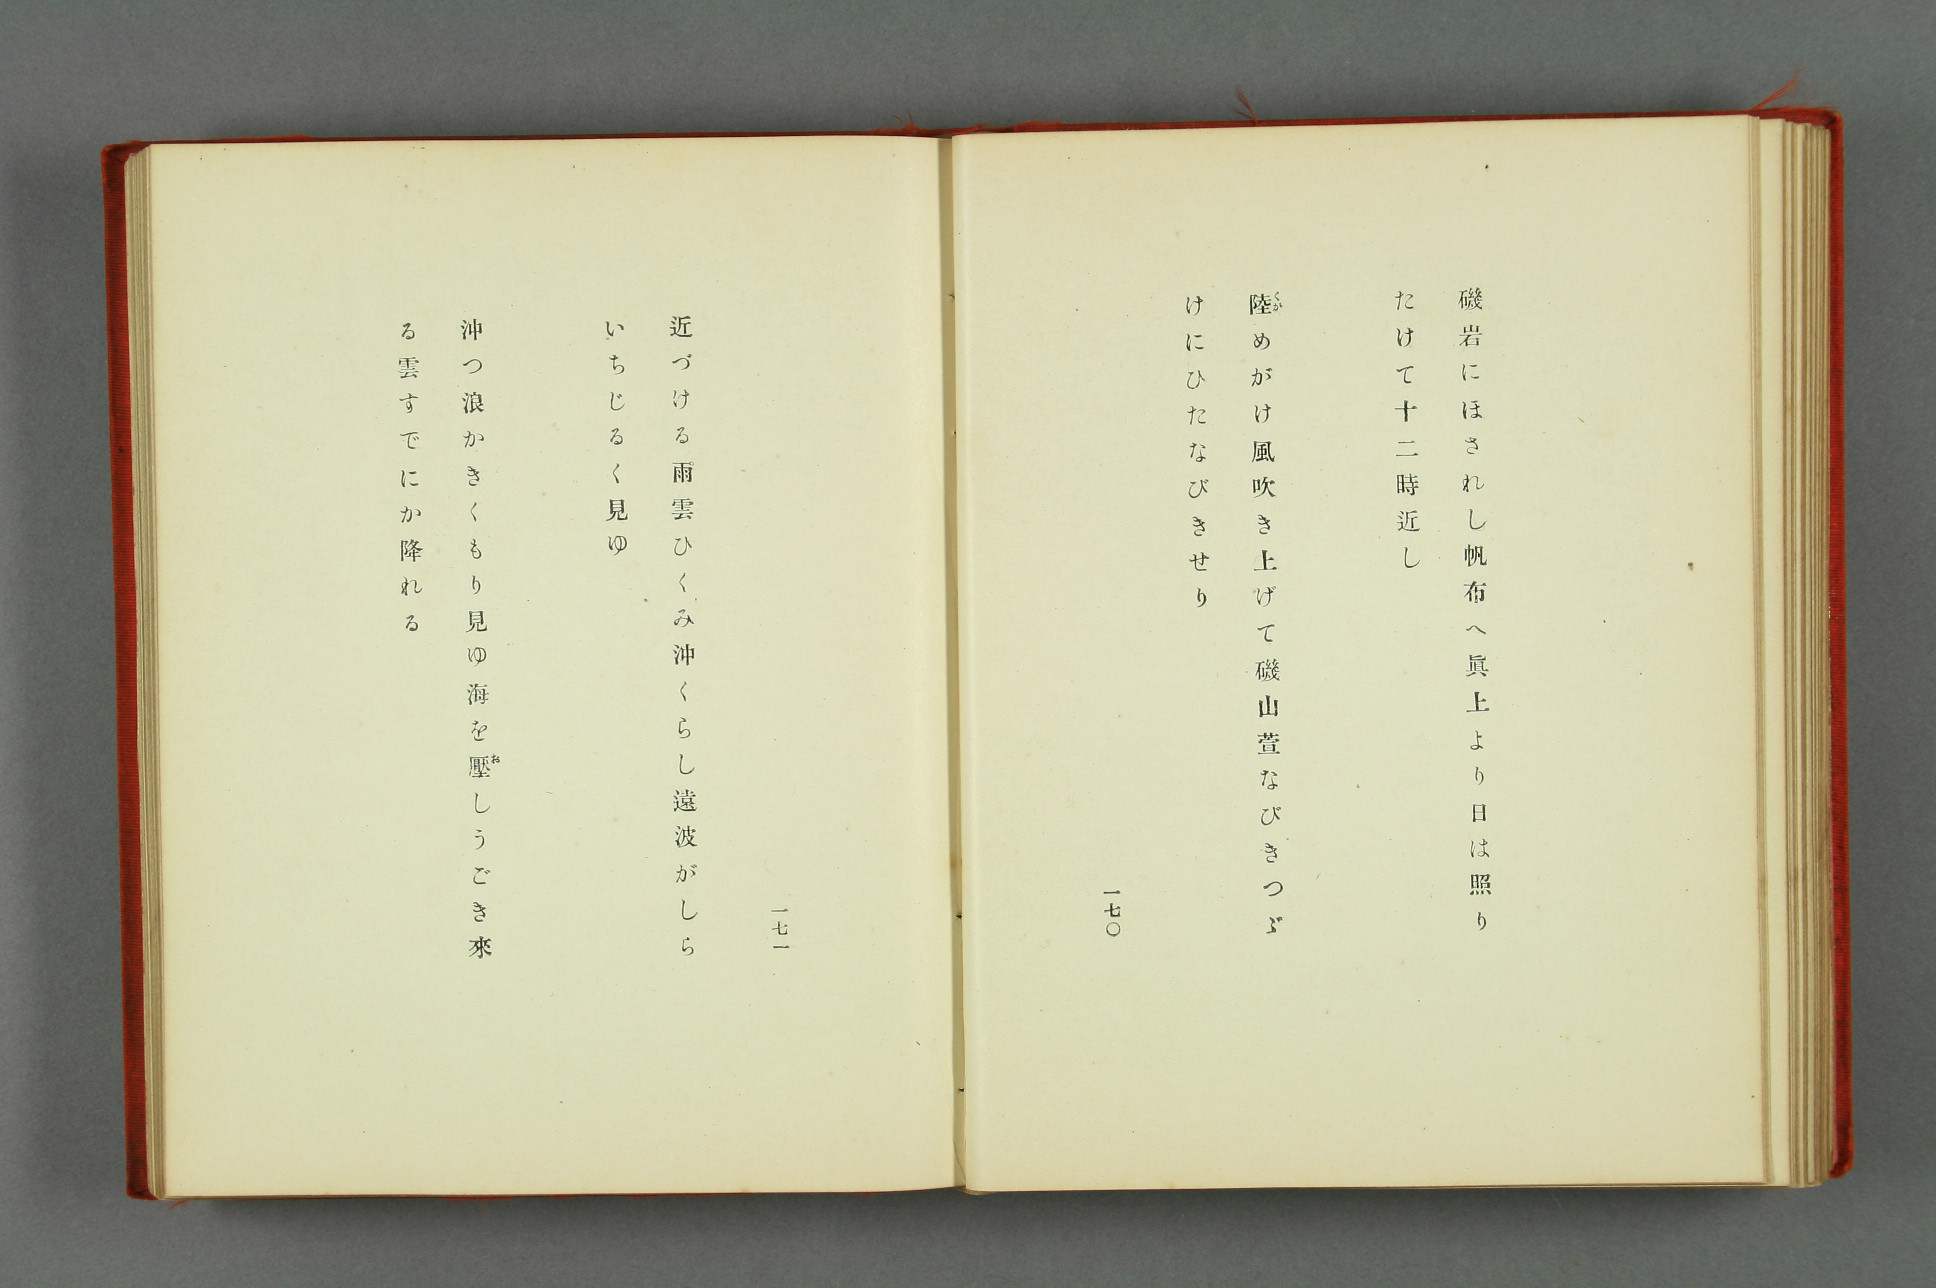 磯岩にほされし帆布へ眞上より日は照り
たけて十二時近し
陸めがけ風吹き上げて磯山萱なびきつゞ
けにひたなびきせり
一七〇
近づける雨雲ひくみ沖くらし遠波がしら
いちじるく見ゆ
沖つ浪かきくもり見ゆ海を壓しうごき來
る雲すでにか降れる
一七一